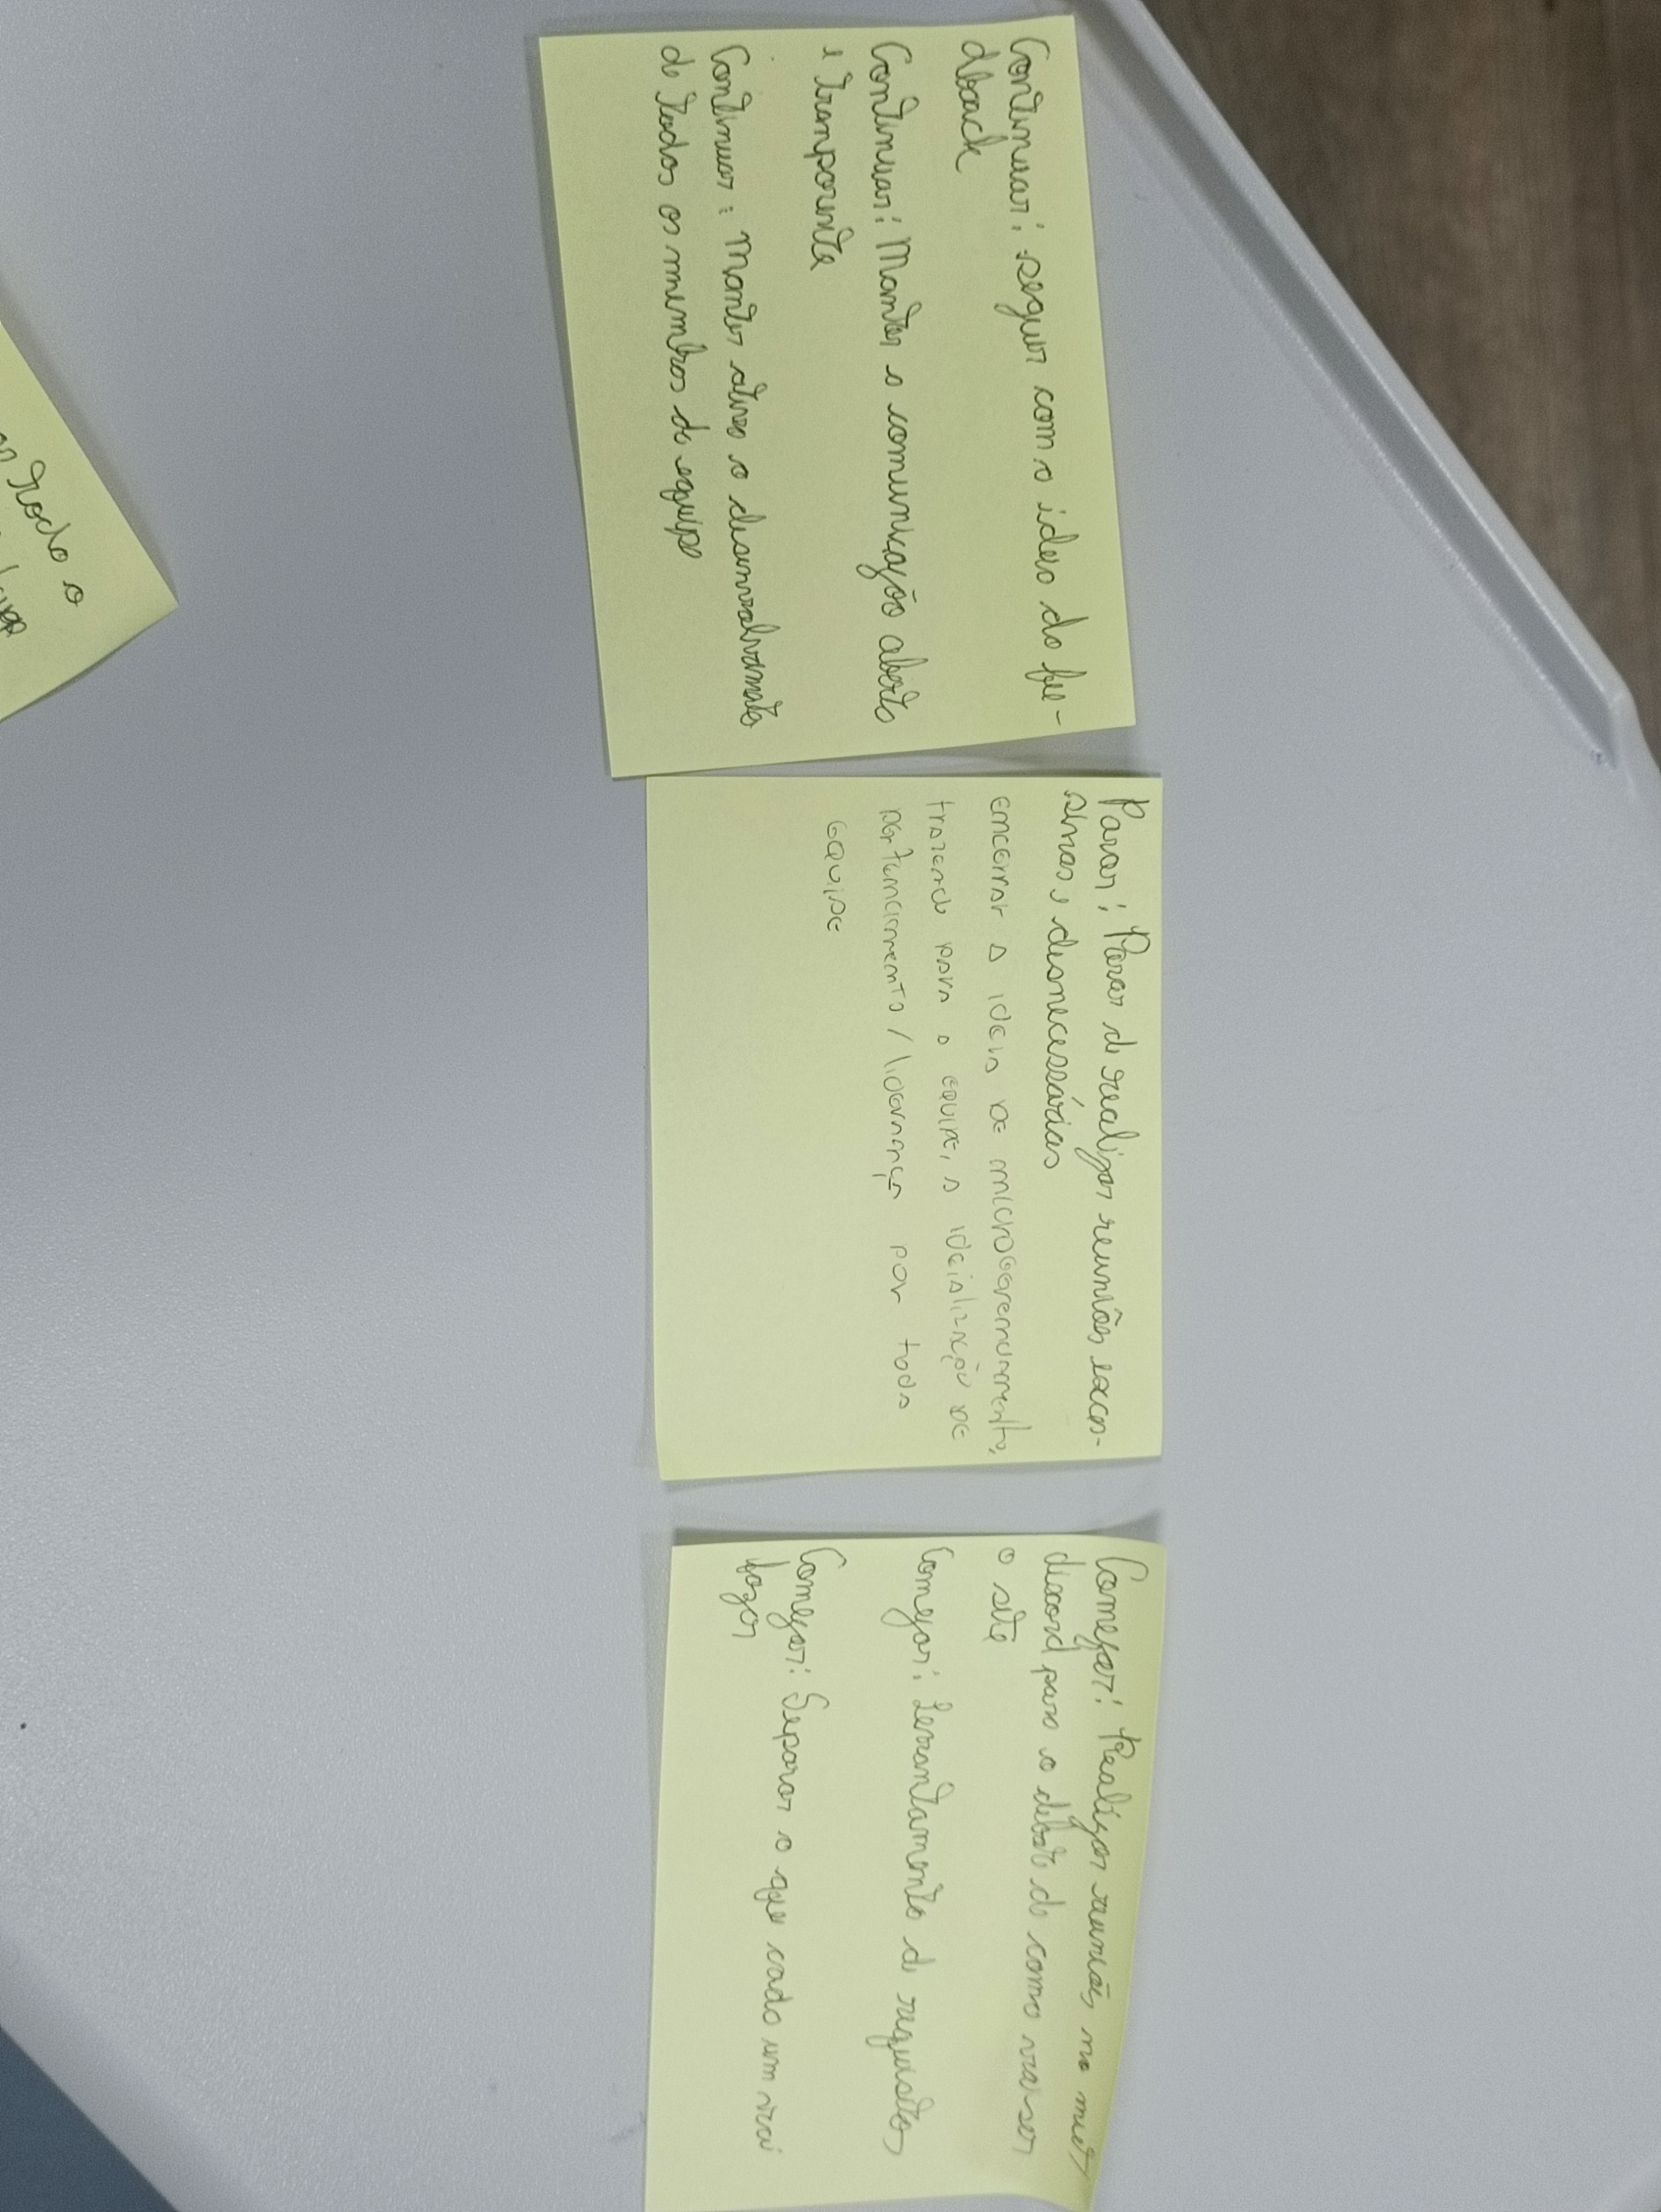 Continuar: seguir com a ideia do fee-
dback
Continuar: Manter a comunicação aberta
e transparente
Continuar: manter ativo o desenvolvimento
de todos os membros da equipe
Parar: Parar de realizar reuniões exces-
sivas e desnecessárias
encerrar a ideia de microgerenciamento,
trazendo para a equipe, a idealização de
pertencimento/liderança por toda
equipe
Começar: Realizar reuniões no meet/
discord para o debate de como vai ser
o site
Começar: Levantamento de requisitos
Começar: Separar o que cada um vai
fazer
todo o